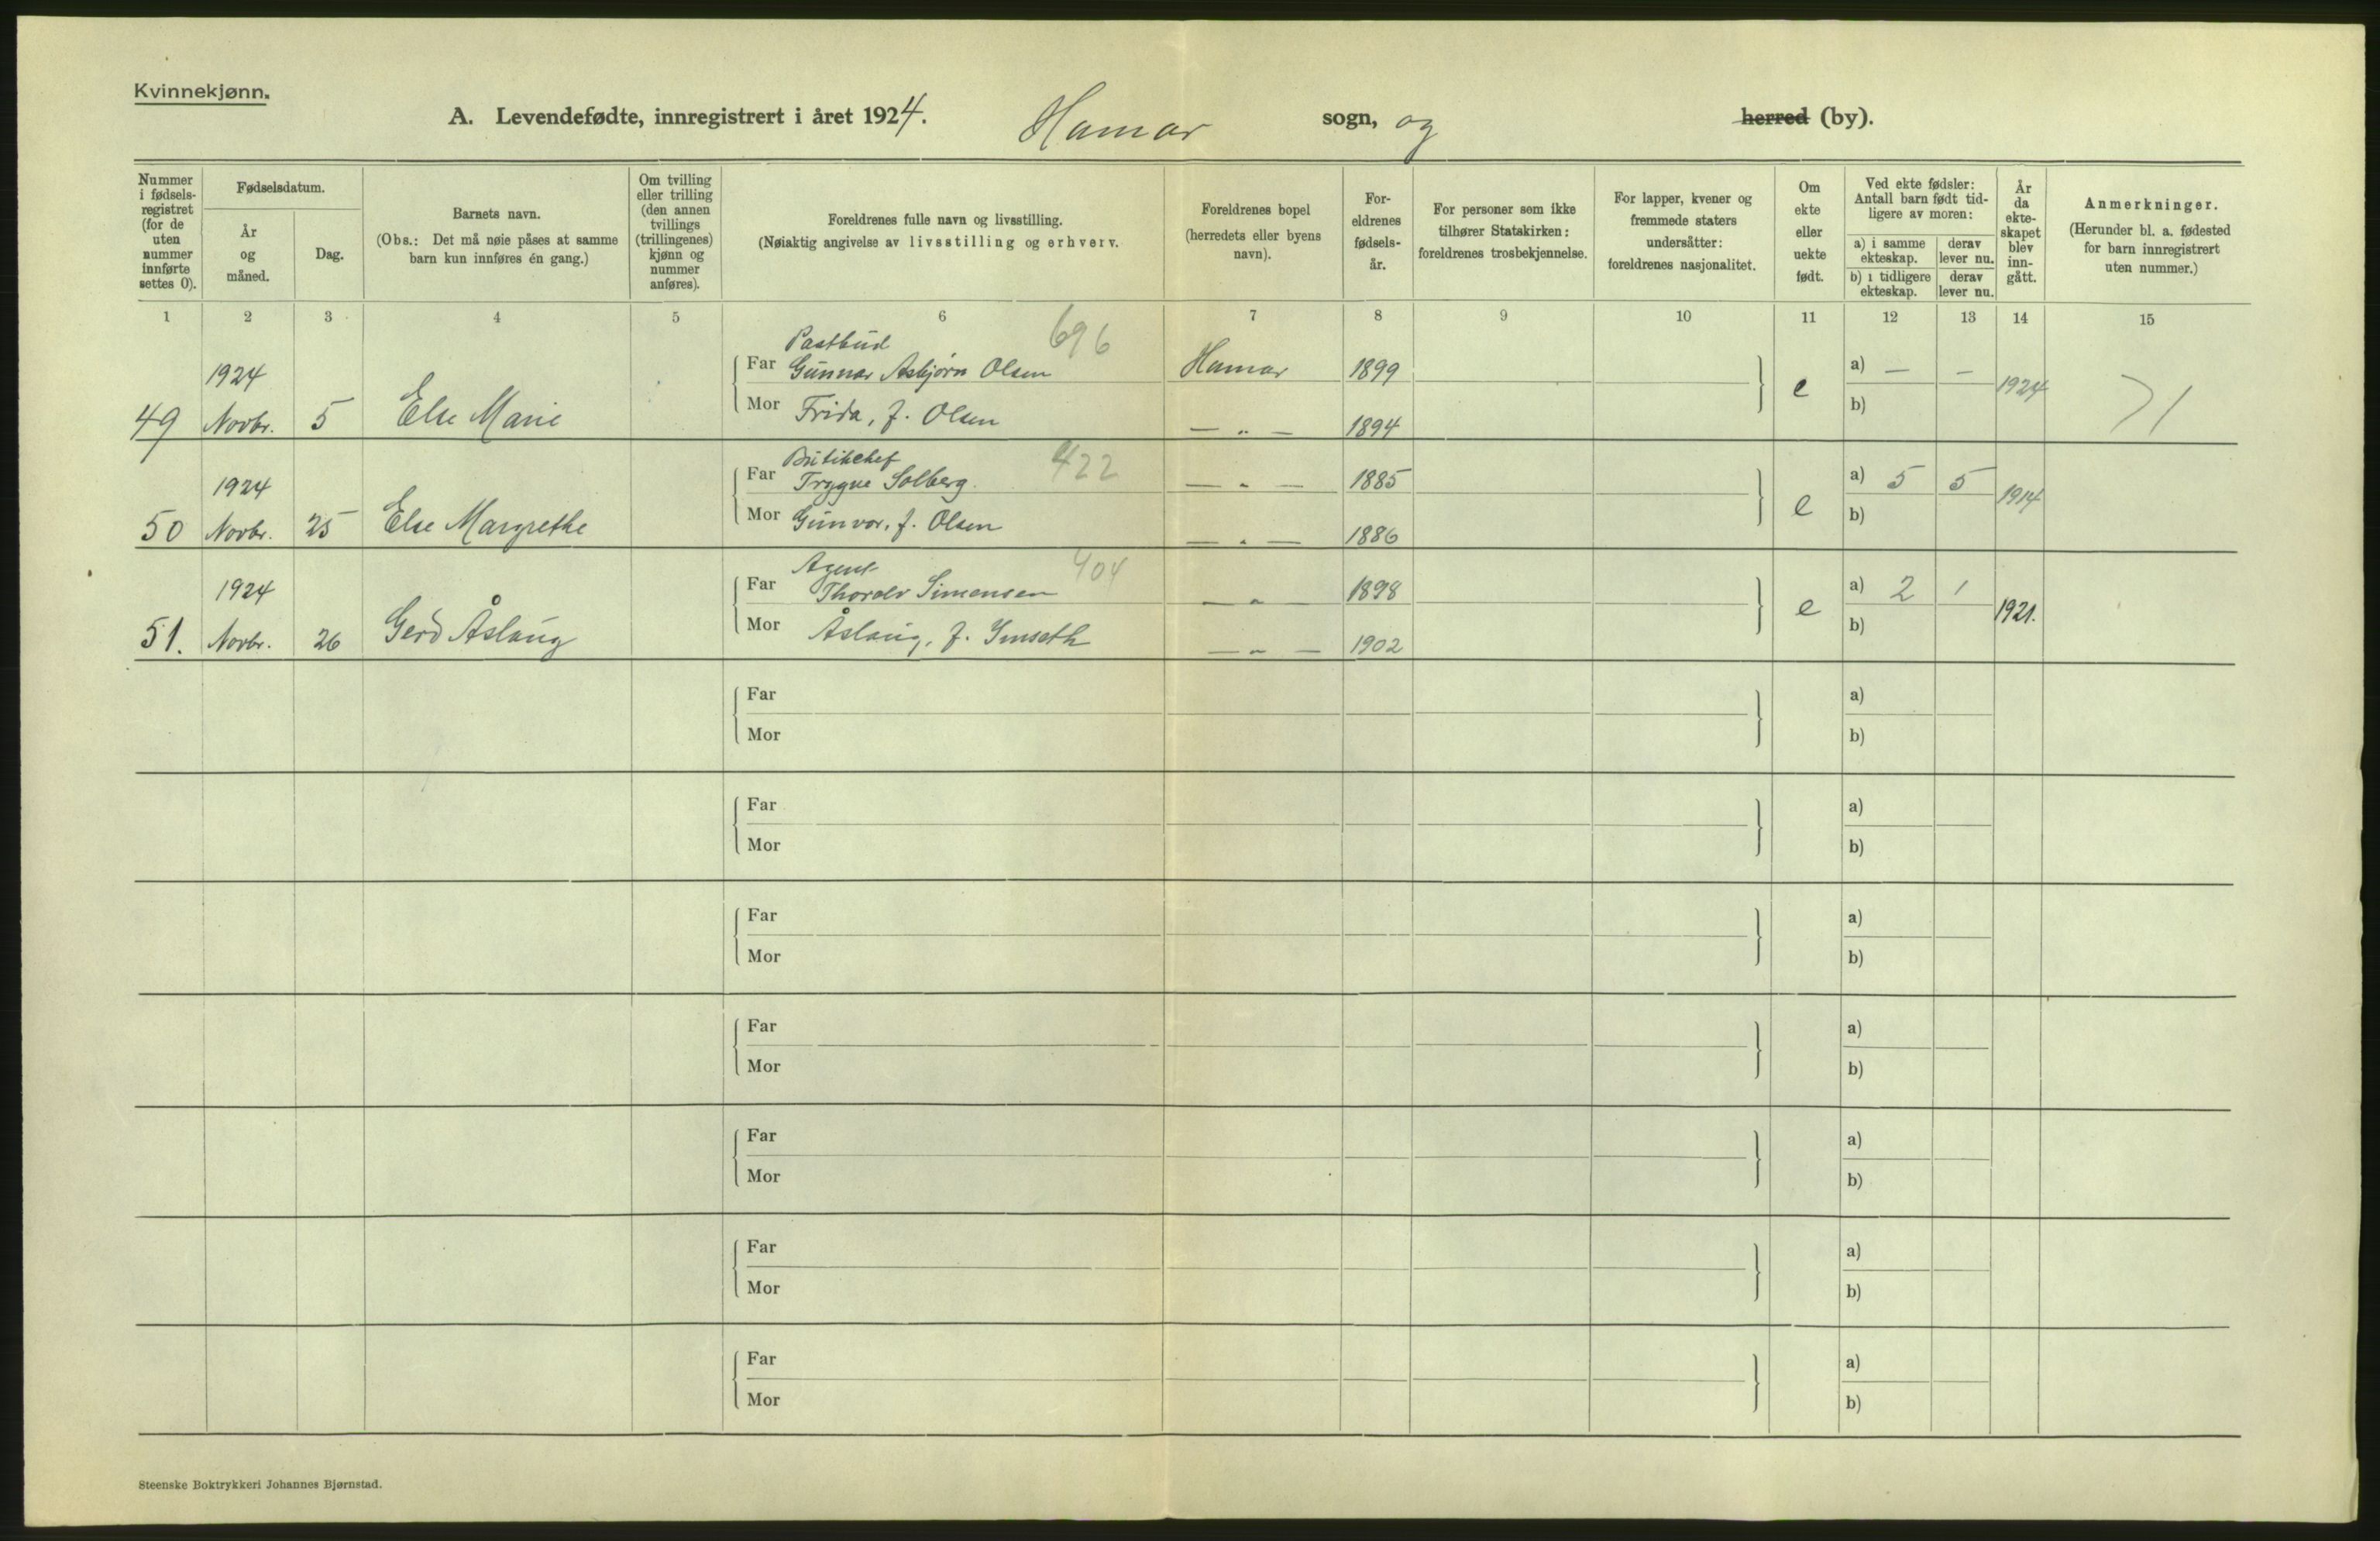 Kvinnekjønn.
A. Levendefødte, innregistrert i året 1924. Hamar sogn, og herred (by).
Nummer
i fødsels-
registret
(for de
uten
nummer
innførte
settes 0).
Fødselsdatum.
År
og
måned.
Dag.
Barnets navn.
(Obs.: Det må nøie påses at samme
barn kun innføres én gang.)
Om tvilling
eller trilling
(den annen
tvillings
(trillingenes)
kjønn og
nummer
anføres).
Foreldrenes fulle navn og livsstilling.
(Nøiaktig angivelse av livsstilling og erhverv.
Foreldrenes bopel
(herredets eller byens
navn).
For-
eldrenes
fødsels-
år.
For personer som ikke
tilhører Statskirken:
foreldrenes trosbekjennelse.
For lapper, kvener og
fremmede staters
undersåtter:
foreldrenes nasjonalitet.
Om
ekte
eller
uekte
født.
Ved ekte fødsler:
Antall barn født tid-
ligere av moren:
a) i samme
ekteskap.
derav
lever nu.
b) i tidligere
ekteskap.
derav
lever nu.
År
da
ekte-
skapet
blev
inn-
gått.
Anmerkninger.
(Herunder bl. a. fødested
for barn innregistrert
uten nummer.)
1 2 3 4 5 6 7 8 9 10 11 12 13 14 15
Postbud 696
1924 Far Gunnar Asbjørn Olsen Hamar 1899 a) — —
49 Novbr. 5 Else Marie Mor Frida, f. Olsen — " — 1894 e b) 1924
Butikchef 422
1924 Far Trygve Solberg. — " — 1885 a) 5 5
50 Novbr. 25 Else Margrethe Mor Gunvor, f. Olsen — " — 1886 e b) 1914
Agent 404
1924 Far Thorolv Simensen — " — 1898 a) 2 1
51. Novbr. 26 Gerd Åslaug Mor Åslaug, f. Imseth — " — 1902 e b) 1921.
Far a)
Mor b)
Far a)
Mor b)
Far a)
Mor b)
Far a)
Mor b)
Far a)
Mor b)
Far a)
Mor b)
Far a)
Mor b)
Steenske Boktrykkeri Johannes Bjørnstad.